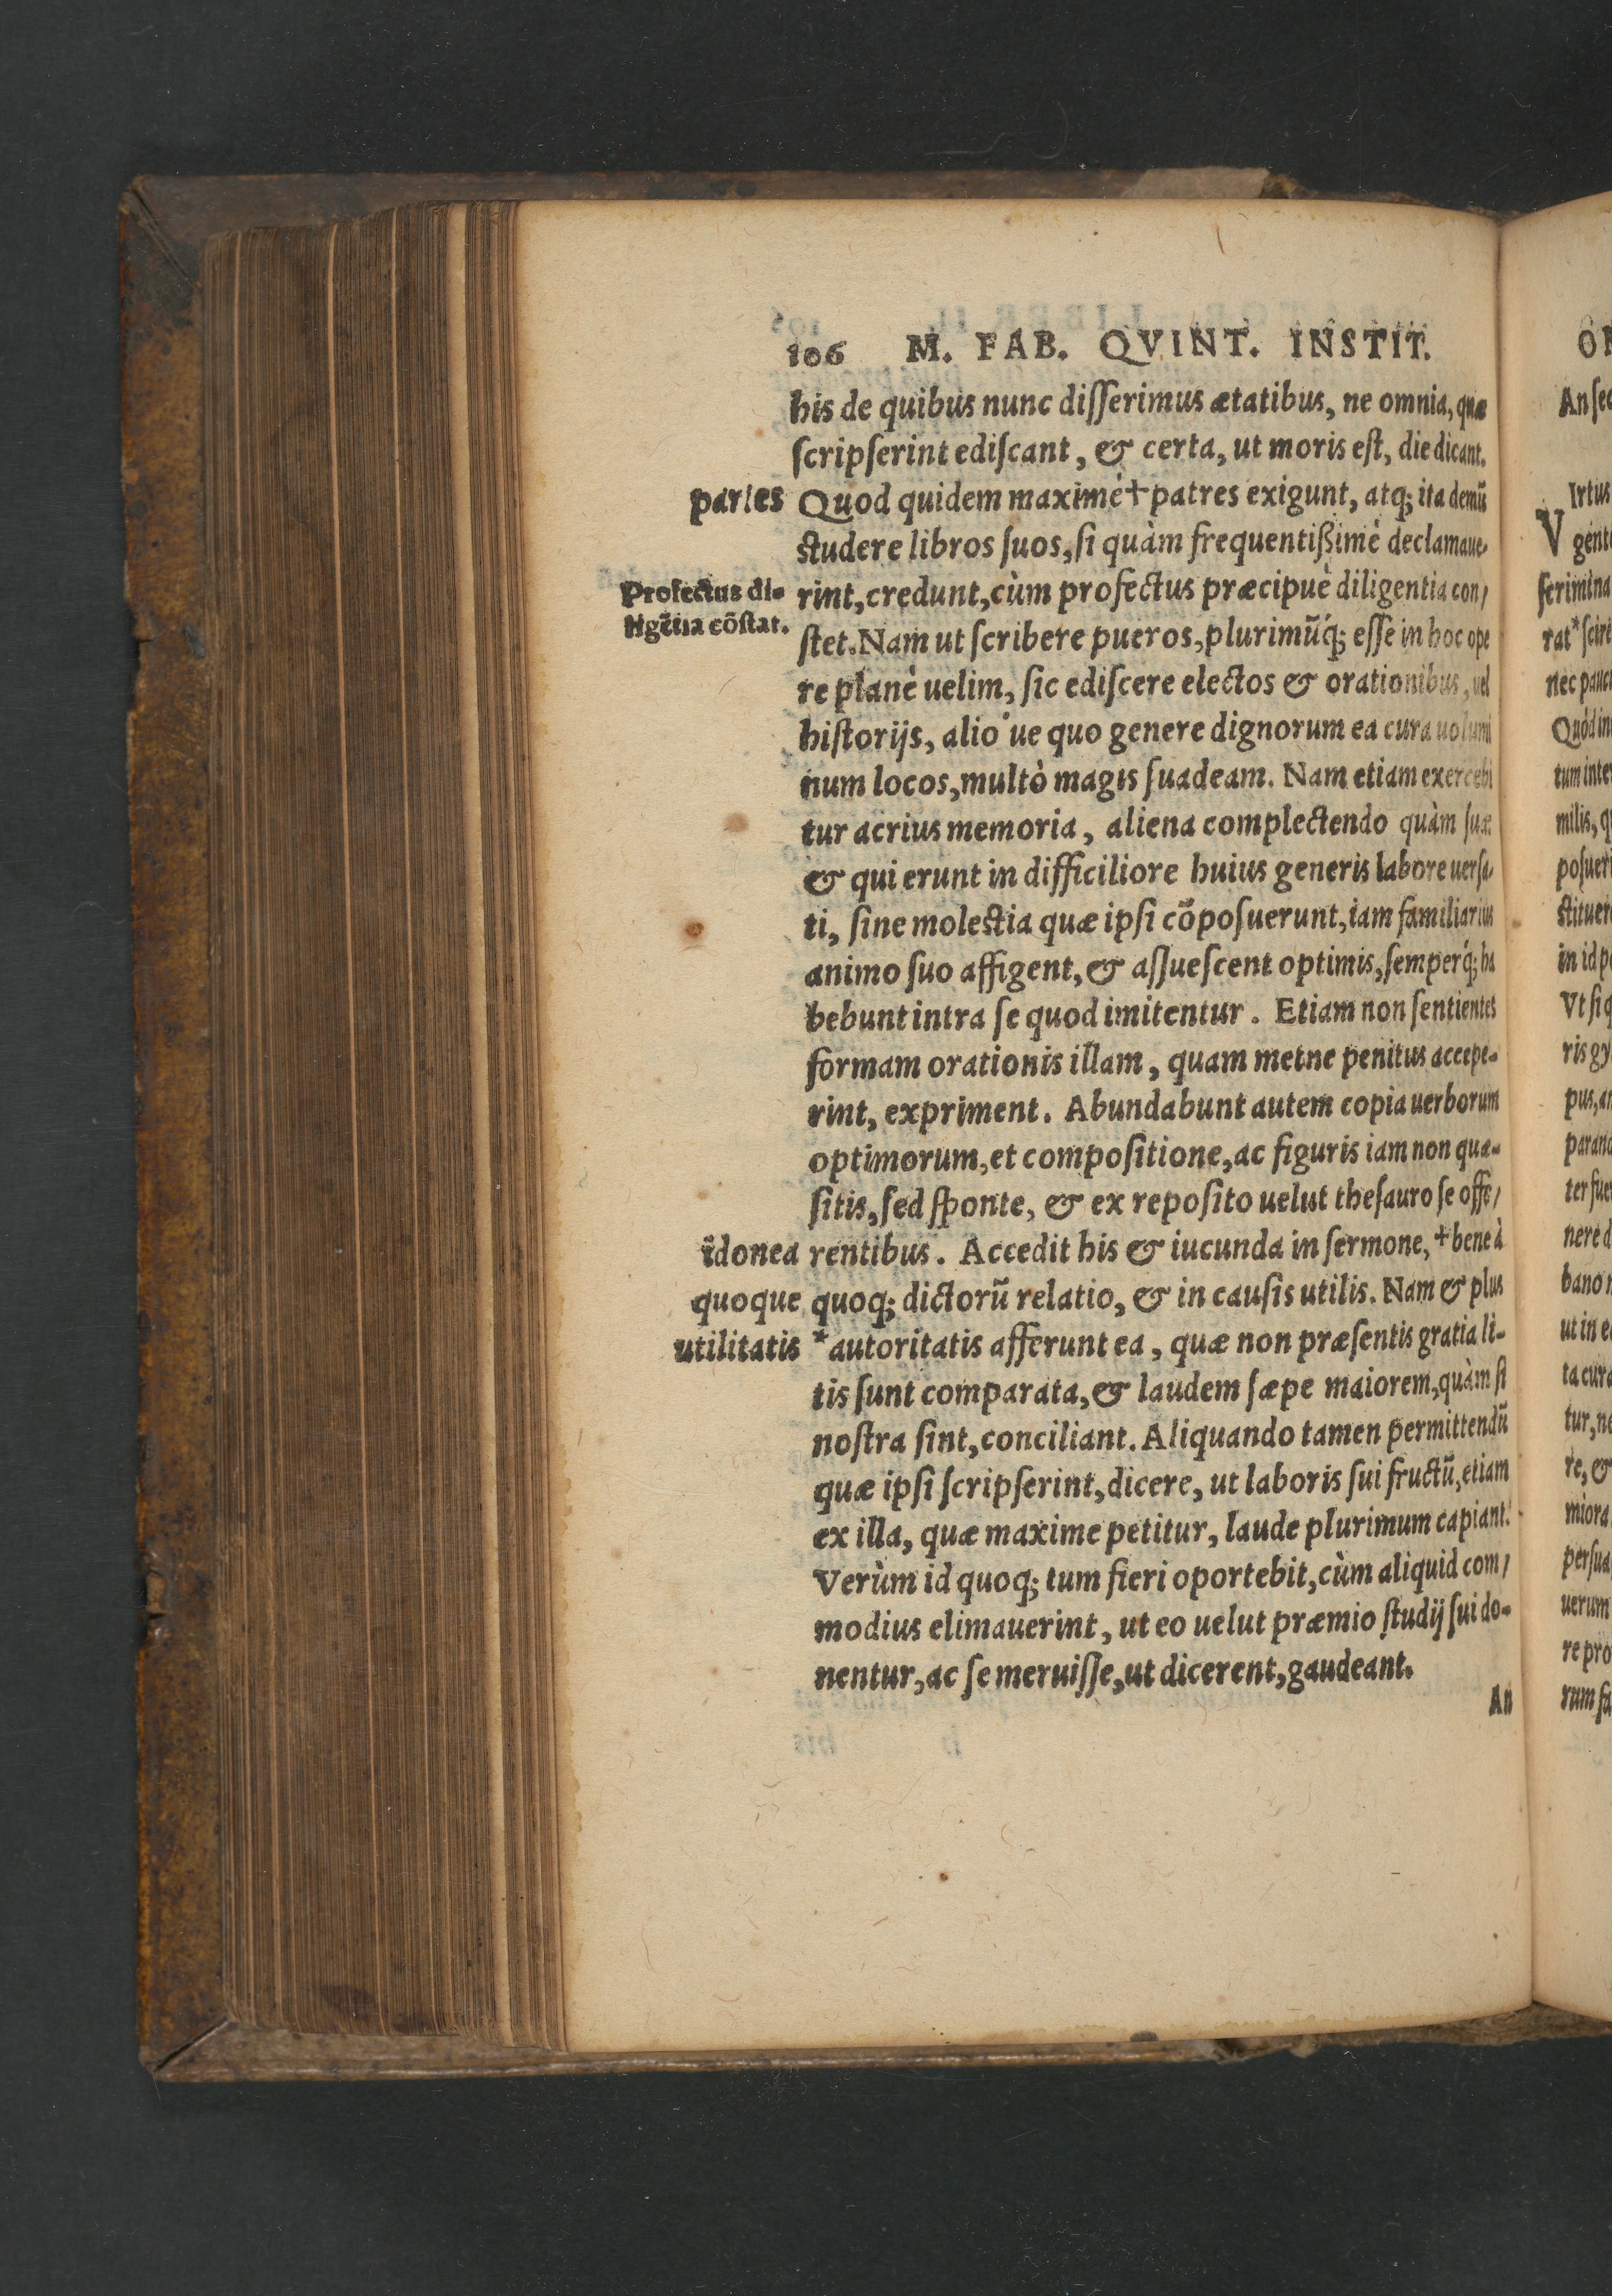 106 M. FAB. QVINT. INSTIT.
his de quibus nunc diſſerimus ætatibus, ne omnia, quæ
ſcripſerint ediſcant, & certa, ut moris eſt, die dicant.
partes
Quod quidem maximè+patres exigunt, atq; ita demũ
ſtudere libros ſuos, ſi quàm frequentißimè declamaue⸗
Profectus di⸗
ligẽtia cõſtat.
rint, credunt, cùm profectus præcipuè diligentia con⸗
ſtet. Nam ut ſcribere pueros, plurimũq́; eſſe in hoc ope
re planè uelim, ſic ediſcere electos & orationibus, uel
hiſtorijs, alio ue quo genere dignorum ea cura uolumi
num locos, multò magis ſuadeam. Nam etiam exercebi
tur acrius memoria, aliena complectendo quàm ſua:
& qui erunt in difficiliore huius generis labore uerſa⸗
ti, ſine moleſtia quæ ipſi cõpoſuerunt, iam familiarius
animo ſuo affigent, & aſſueſcent optimis, ſemperq́; ha
bebunt intra ſe quod imitentur. Etiam non ſentientes
formam orationis illam, quam mente penitus accepe⸗
rint, expriment. Abundabunt autem copia uerborum
optimorum, et compoſitione, ac figuris iam non quæ⸗
ſitis, ſed ſponte, & ex repoſito uelut theſauro ſe offe⸗
idonea
rentibus. Accedit his & iucunda in ſermone, +bene à
quoque
quoq; dictorũ relatio, & in cauſis utilis. Nam & plus
utilitatis
*autoritatis afferunt ea, quæ non præſentis gratia li⸗
tis ſunt comparata, & laudem ſæpe maiorem, quàm ſi
noſtra ſint, conciliant. Aliquando tamen permittendũ
quæ ipſi ſcripſerint, dicere, ut laboris ſui fructũ, etiam
ex illa, quæ maxime petitur, laude plurimum capiant.
Verùm id quoq; tum fieri oportebit, cùm aliquid com⸗
modius elimauerint, ut eo uelut præmio ſtudij ſui do⸗
nentur, ac ſe meruiſſe, ut dicerent, gaudeant.
An